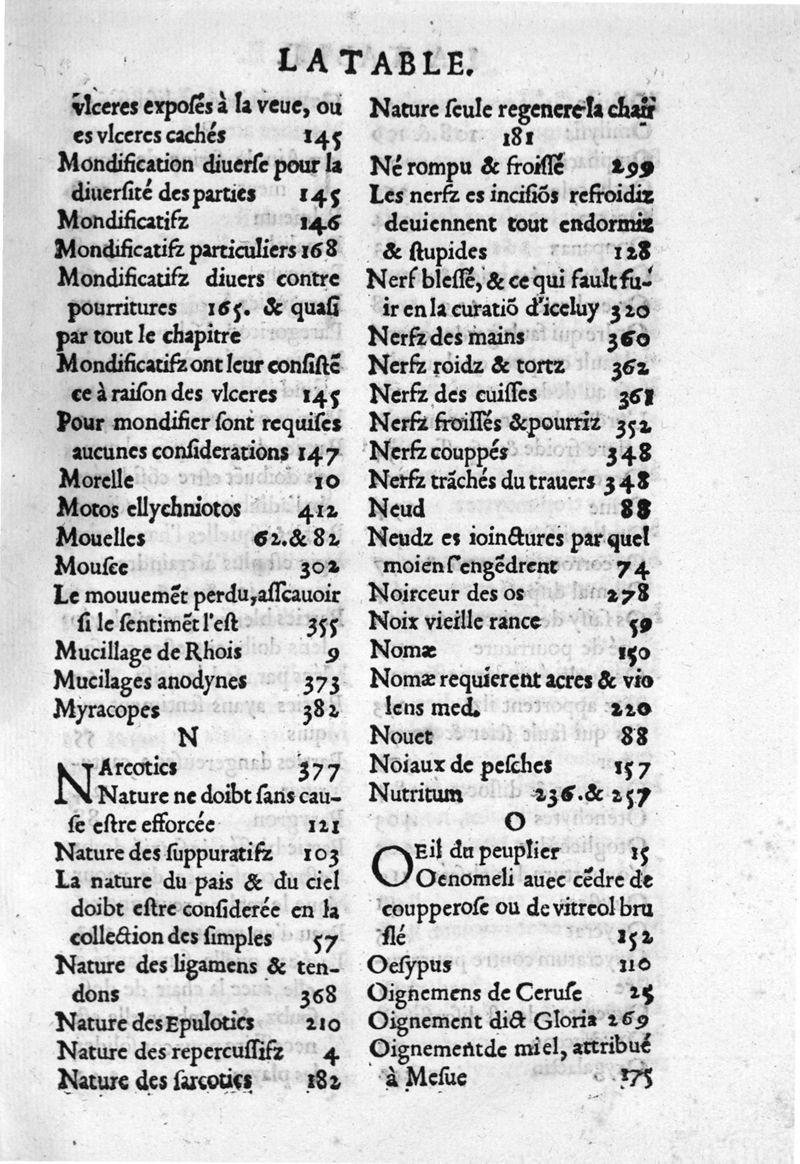 LA TABLE.
vlceres exposés à la veue, ou
es vlceres cachés 145
Mondification diuerſe pour la
diuerſité des parties 145
Mondificatifz 146
Mondificatifz particuliers 168
Mondificatifz diuers contre
pourritures 165. & quaſi
par tout le chapitre
Mondificatifz ont leur conſiſtẽ
ce à raiſon des vlceres 145
Pour mondifier ſont requiſes
aucunes conſiderations 147
Morelle 10
Motos ellychniotos 412
Mouelles 62.& 82
Mouſce 302
Le mouuemẽt perdu, aſſcauoir
ſi le ſentimẽt l'eſt 355
Mucillage de Rhois 9
Mucilages anodynes 373
Myracopes 382
N
NArcotics 377
Nature ne doibt ſans cau-
ſe eſtre efforcée 121
Nature des ſuppuratifz 103
La nature du pais & du ciel
doibt eſtre conſiderée en la
collection des ſimples 57
Nature des ligamens & ten-
dons 368
Nature des Epulotics 210
Nature des repercuſſifz 4
Nature des ſarcotics 182
Nature ſeule regenere la chair
181
Né rompu & froiſſé 299
Les nerfz es inciſiõs refroidiz
deuiennent tout endormiz
& ſtupides 128
Nerf bleſſé, & ce qui fault fu-
ir en la curatiõ d'iceluy 320
Nerfz des mains 360
Nerfz roidz & tortz 362
Nerfz des cuiſſes 361
Nerfz froiſſés & pourriz 352
Nerfz couppés 348
Nerfz trãchés du trauers 348
Neud 88
Neudz es ioinctures par quel
moien ſ'engẽdrent 74
Noirceur des os 278
Noix vieille rance 59
Nomæ 150
Nomæ requierent acres & vio
lens med. 220
Nouet 88
Noiaux de peſches 157
Nutritum 236.& 257
O
OEil du peuplier 15
Oenomeli auec cẽdre de
coupperoſe ou de vitreol bru
ſlé 152
Oeſypus 110
Oignemens de Ceruſe 25
Oignement dict Gloria 269
Oignement de miel, attribué
à Meſue 175